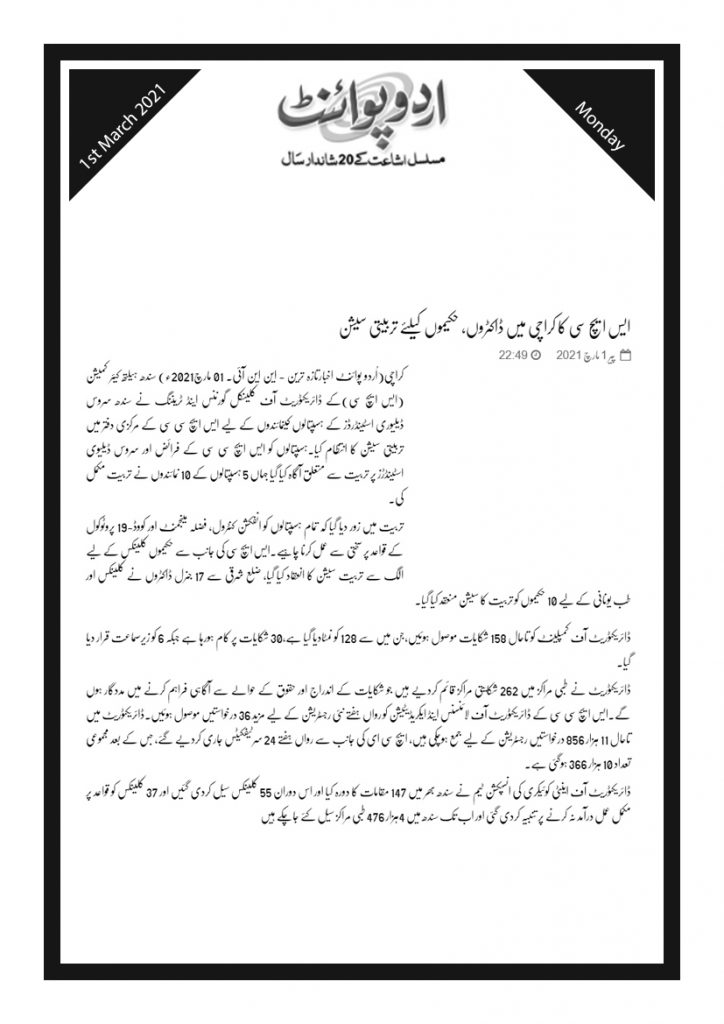 1st March 2021
Monday
اردو پوائنٹ
مسلسل اشاعت کے 20 شاندار سال
ایس ایچ سی کا کراچی میں ڈاکٹروں، حکیموں کیلئے تربیتی سیشن
پیر 1 مارچ 2021 22:49
کراچی(اُردو پوائنٹ اخبارتازہ ترین - این این آئی۔ 01 مارچ2021ء) سندھ ہیلتھ کیئر کمیشن
(ایس ایچ سی)کے ڈائریکٹوریٹ آف کلینیکل گورننس اینڈ ٹریننگ نے سندھ سروس
ڈیلیوری اسٹینڈرڈز کے ہسپتالوں کےنمائندوں کے لیے ایس ایچ سی سی کے مرکزی دفتر میں
تربیتی سیشن کا انتظام کیا۔ہسپتالوں کو ایس ایچ سی سی کے فرائض اور سروس ڈیلیوی
اسٹینڈرز پر تربیت سے متعلق آگاہ کیا گیا جہاں 5 ہسپتالوں کے 10 نمائندوں نے تربیت مکمل
کی۔
تربیت میں زور دیا گیا کہ تمام ہسپتالوں کو انفکشن کنٹرول، فضلہ مینجمنٹ اور کووڈ-19 پروٹوکول
کے قواعد پر سختی سے عمل کرنا چاہیے۔ایس ایچ سی کی جانب سے حکیموں کلینکس کے لیے
الگ سے تربیت سیشن کا انعقاد کیا گیا، ضلع شرقی سے 17 جنرل ڈاکٹروں نے کلینکس اور
طب یونانی کے لیے 10 حکیموں کو تربیت کا سیشن منعقد کیا گیا۔
ڈائریکٹوریٹ آف کمپلینٹ کو تاحال 158 شکایات موصول ہوئیں،جن میں سے 128 کو نمٹادیا گیا ہے،30 شکایات پر کام ہورہا ہے جبکہ 6 کو زیرسماعت قرار دیا
گیا۔
ڈائریکٹوریٹ نے طبی مراکز میں 262 شکایتی مراکز قائم کردیے ہیں جو شکایات کے اندراج اور حقوق کے حوالے سے آگاہی فراہم کرنے میں مددگار ہوں
گے۔ایس ایچ سی سی کے ڈائریکٹوریٹ آف لائسنس اینڈ ایکریڈیٹیشن کو رواں ہفتے نئی رجسٹریشن کے لیے مزید 36 درخواستیں موصول ہوئیں۔ڈائریکٹوریٹ میں
تاحال 11 ہزار 856 درخواستیں رجسٹریشن کے لیے جمع ہوچکی ہیں، ایچ سی ای کی جانب سے رواں ہفتے 24 سرٹیفکیٹس جاری کردیے گئے، جس کے بعد مجموعی
تعداد 10 ہزار 366 ہوگئی ہے۔
ڈائریکٹوریٹ آف اینٹی کوئیکری کی انسپکشن ٹیم نے سندھ بھر میں 147 مقامات کا دورہ کیا اور اس دوران 55 کلینکس سیل کردی گئیں اور 37 کلینکس کو قواعد پر
مکمل عمل درآمد نہ کرنے پر تنبیہ کردی گئی اور اب تک سندھ میں 4 ہزار 476 طبی مراکز سیل کئے جاچکے ہیں